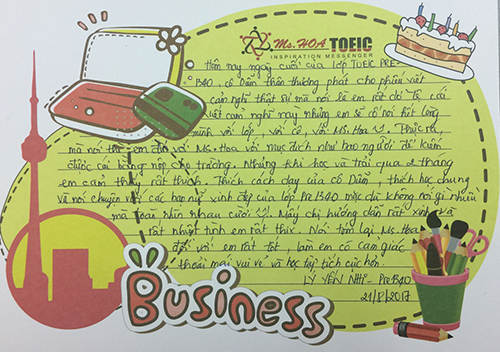 Ms. HOA TOEIC
INSPIRATION MESSENGER
Hôm nay ngày cuối của lớp TOEIC PRE-
B40, cô Dần thân thương phát cho phiếu viết
cảm nghĩ thật sự mà nói là em rất dở tệ cái
viết cảm nghĩ này nhưng em sẽ cố nói hết lòng
mình với lớp, với cô, với Ms. Hoa. Thực ra,
mà nói thì em đến với Ms. Hoa với mục đích như bao người để kiếm
được cái bằng nộp cho trường. Nhưng khi học và trải qua 2 tháng
em cảm thấy rất thích. Thích cách dạy của cô Dần, thích học chung
và nói chuyện với các bạn nữ xinh đẹp của lớp Pre B40 mặc dù không nói gì nhiều
mà toàn nhìn nhau cười. Mấy chị hướng dẫn rất xinh và
rất nhiệt tình em rất thix. Nói tóm lại Ms. Hoa
đối với em rất tốt, làm em có cảm giác
thoải mái vui vẻ và học tập tích cực hơn.
LÝ YẾN NHI - PreB40
21/8/2017
Business